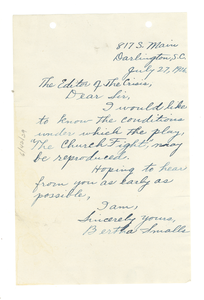 817 S. Main
Darlington, S.C.
July 27, 1926
The Editor of The Crisis,
Dear Sir,
I would like
to know the conditions
under which the play,
"The Church Fight" may
be reproduced.
Hoping to hear
from you as early as
possible,
I am,
Sincerely yours,
Bertha Smalls